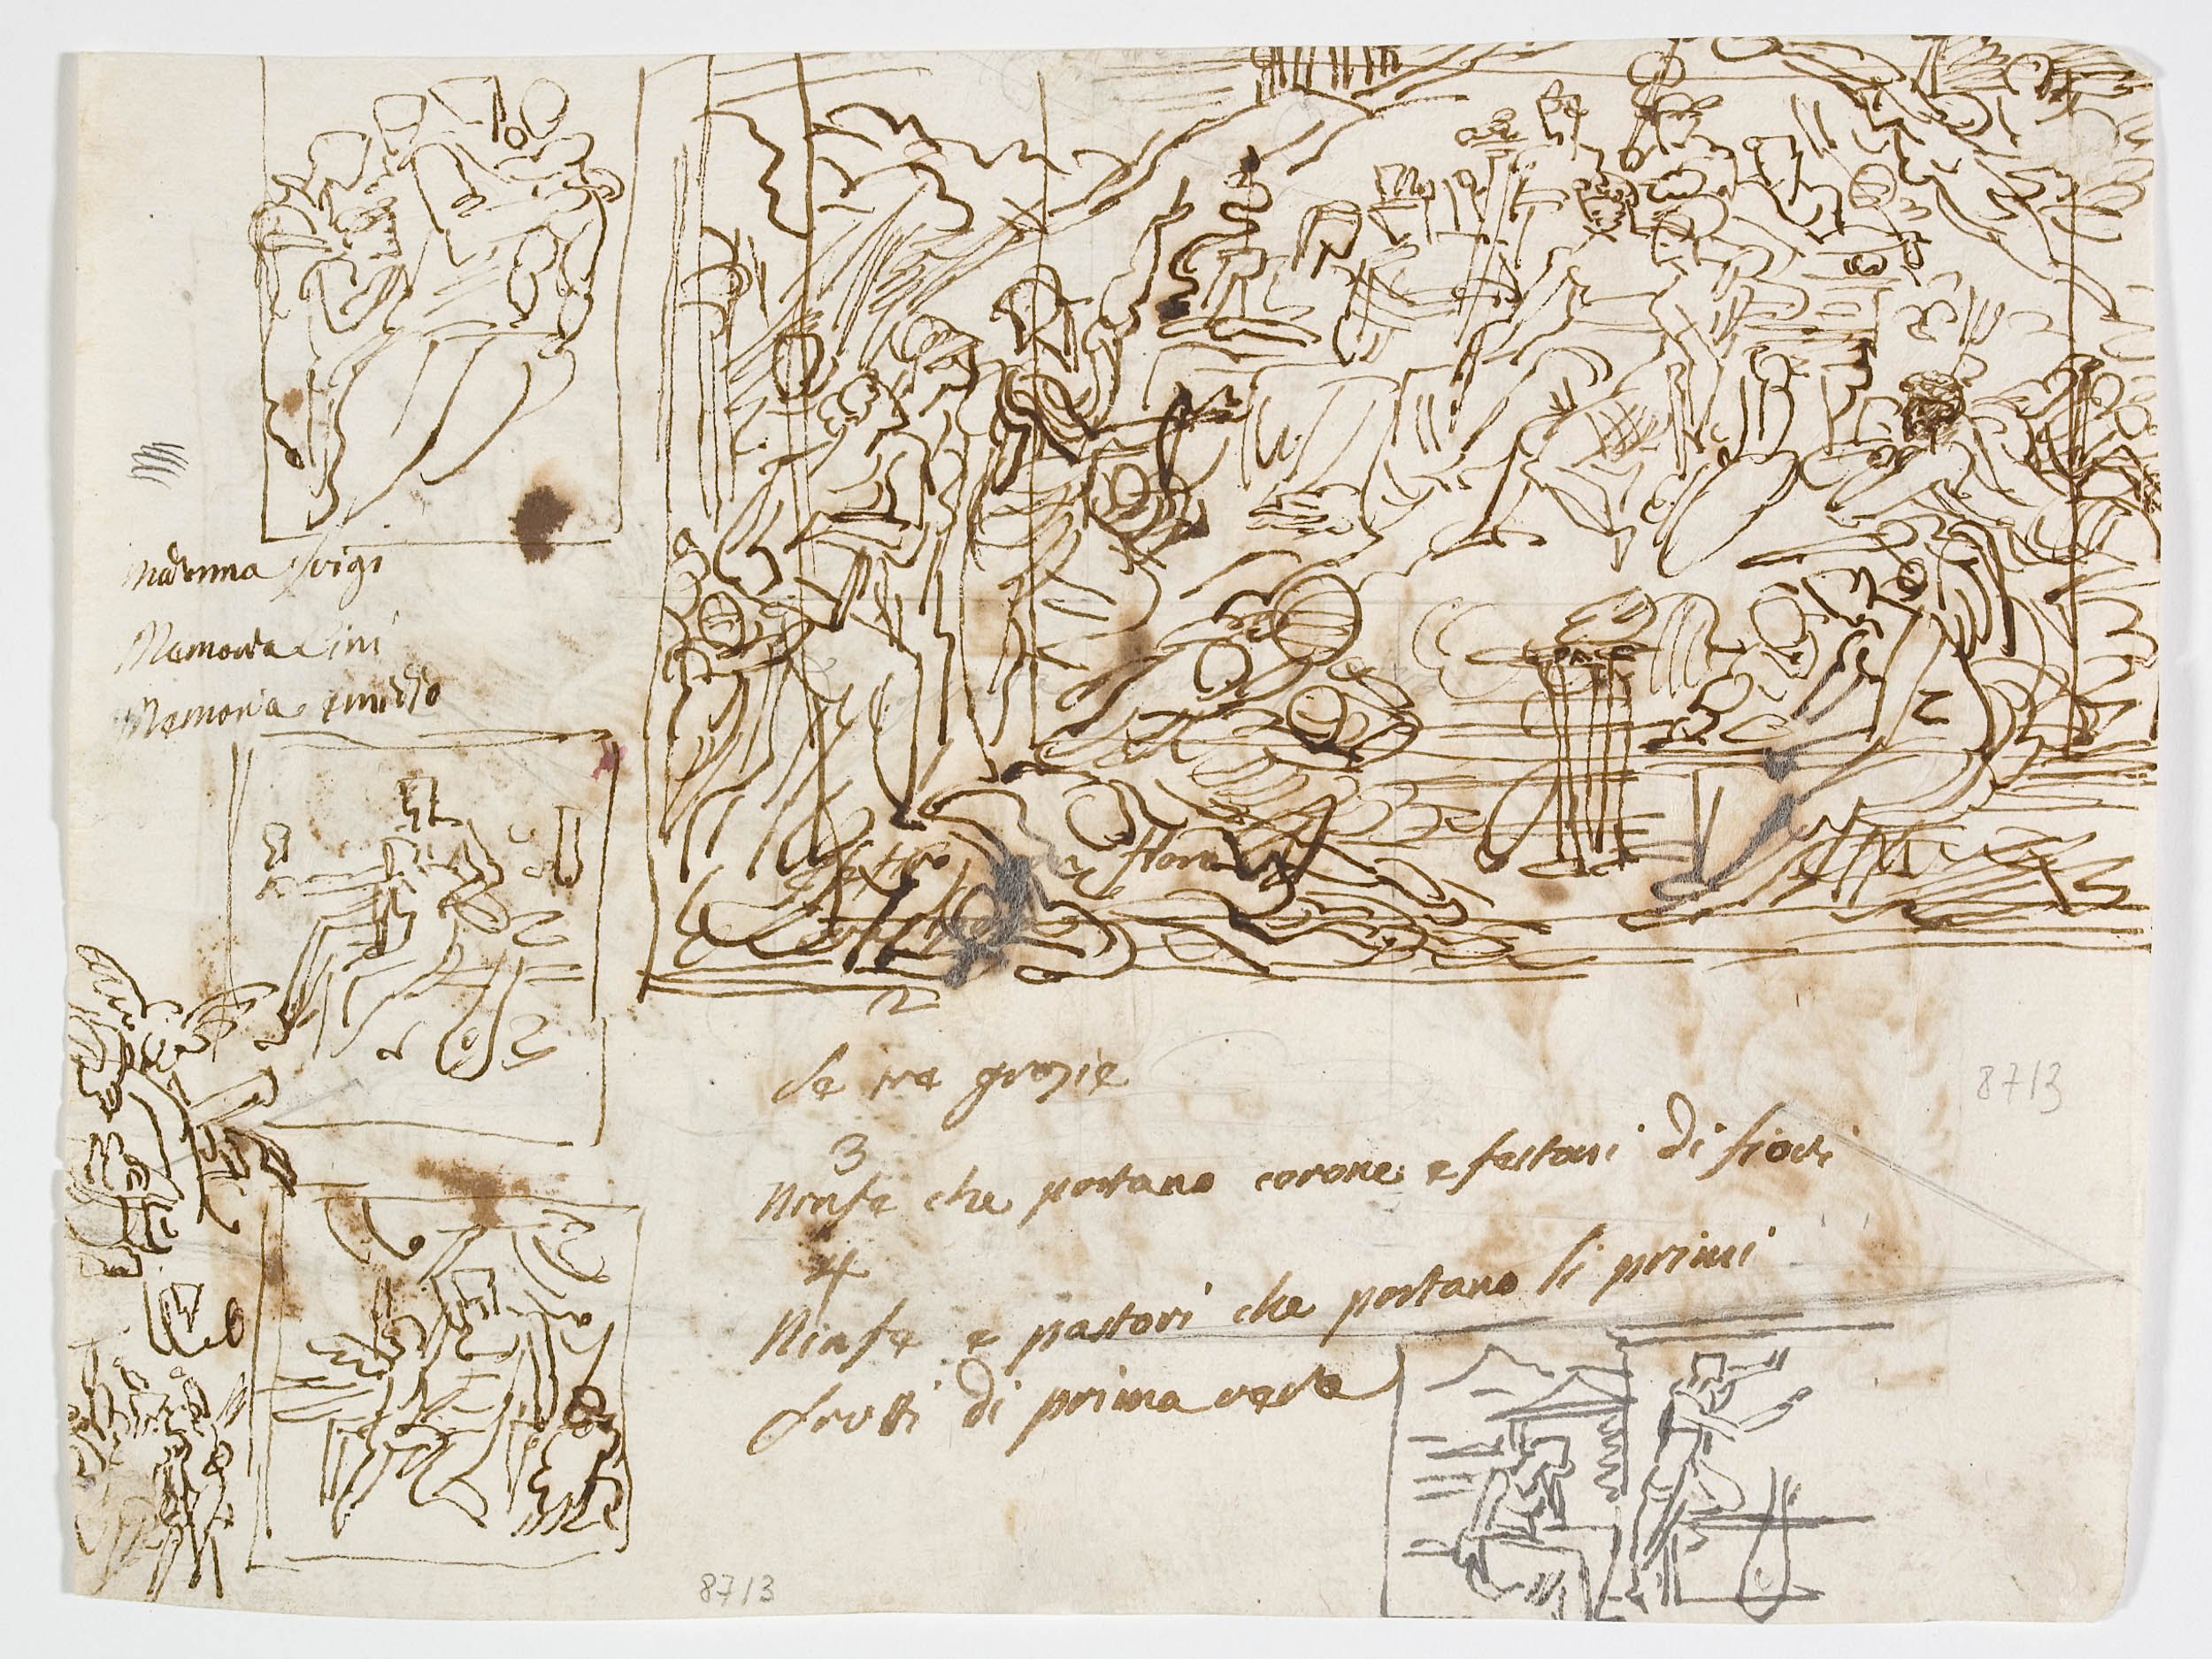 Madonna
Memoria
Memoria
flora
2
le tre grazie
3
Ninfe che portano corone e festoni di fiori
4
Ninfe e pastori che portano li primi
frutti di prima vera
8713
8713